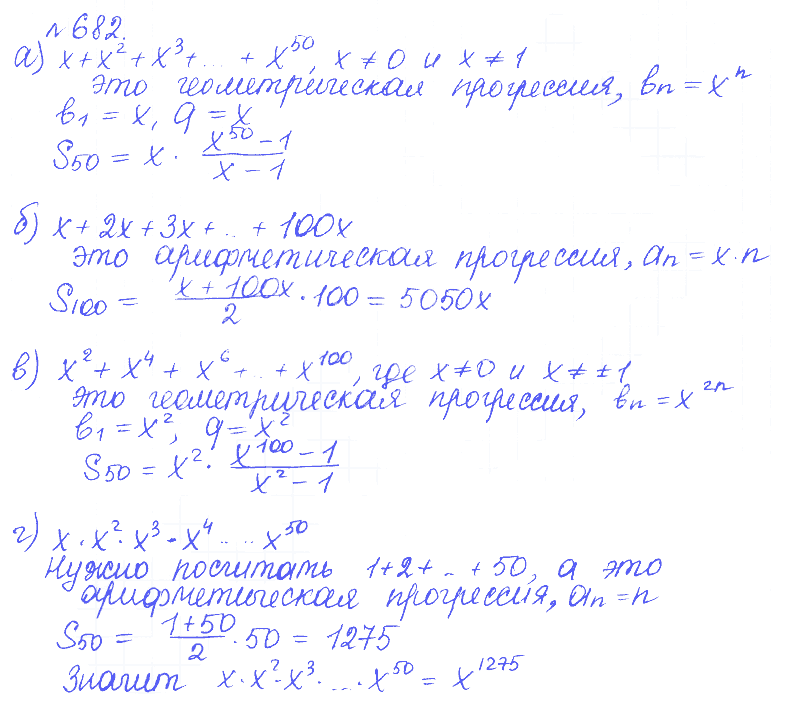 №682.
а) x + x² + x³ + ... + x⁵⁰, x ≠ 0 и x ≠ 1
это геометрическая прогрессия, bₙ = xⁿ
b₁ = x, q = x
S₅₀ = x · (x⁵⁰ − 1)/(x − 1)
б) x + 2x + 3x + ... + 100x
это арифметическая прогрессия, aₙ = x · n
S₁₀₀ = (x + 100x)/2 · 100 = 5050x
в) x² + x⁴ + x⁶ + ... + x¹⁰⁰, где x ≠ 0 и x ≠ ±1
это геометрическая прогрессия, bₙ = x²ⁿ
b₁ = x², q = x²
S₅₀ = x² · (x¹⁰⁰ − 1)/(x² − 1)
г) x · x² · x³ · x⁴ ... x⁵⁰
Нужно посчитать 1 + 2 + ... + 50, а это
арифметическая прогрессия, aₙ = n
S₅₀ = (1 + 50)/2 · 50 = 1275
Значит x · x² · x³ · ... · x⁵⁰ = x¹²⁷⁵